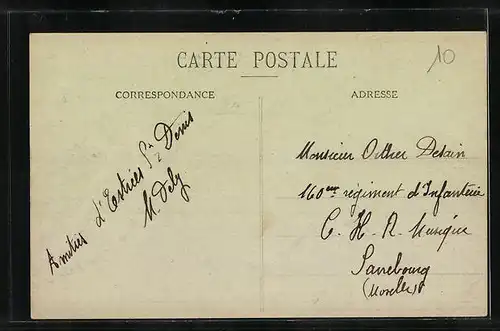 CARTE POSTALE
10
CORRESPONDANCE
ADRESSE
Amitiés d'Estrées St Denis
M. Dely
Monsieur Esther Delain
160eme regiment d'Infanterie
C. H. R. Musique
Sarrebourg
(Moselle)